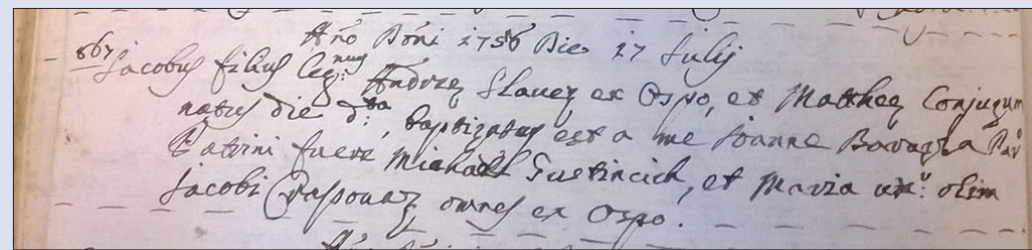 Año Dõni 1756 Die 17 Julij
867 Jacobus filius leg:nus Andreę Slaueg ex Ospo, et Matheę Conjugum
natus die d:ta, baptizatus est a me Joanne Bavagla Par
Patrini fuere Michael Gustincich, et Maria ux: olim
Jacobi omnes ex Ospo.